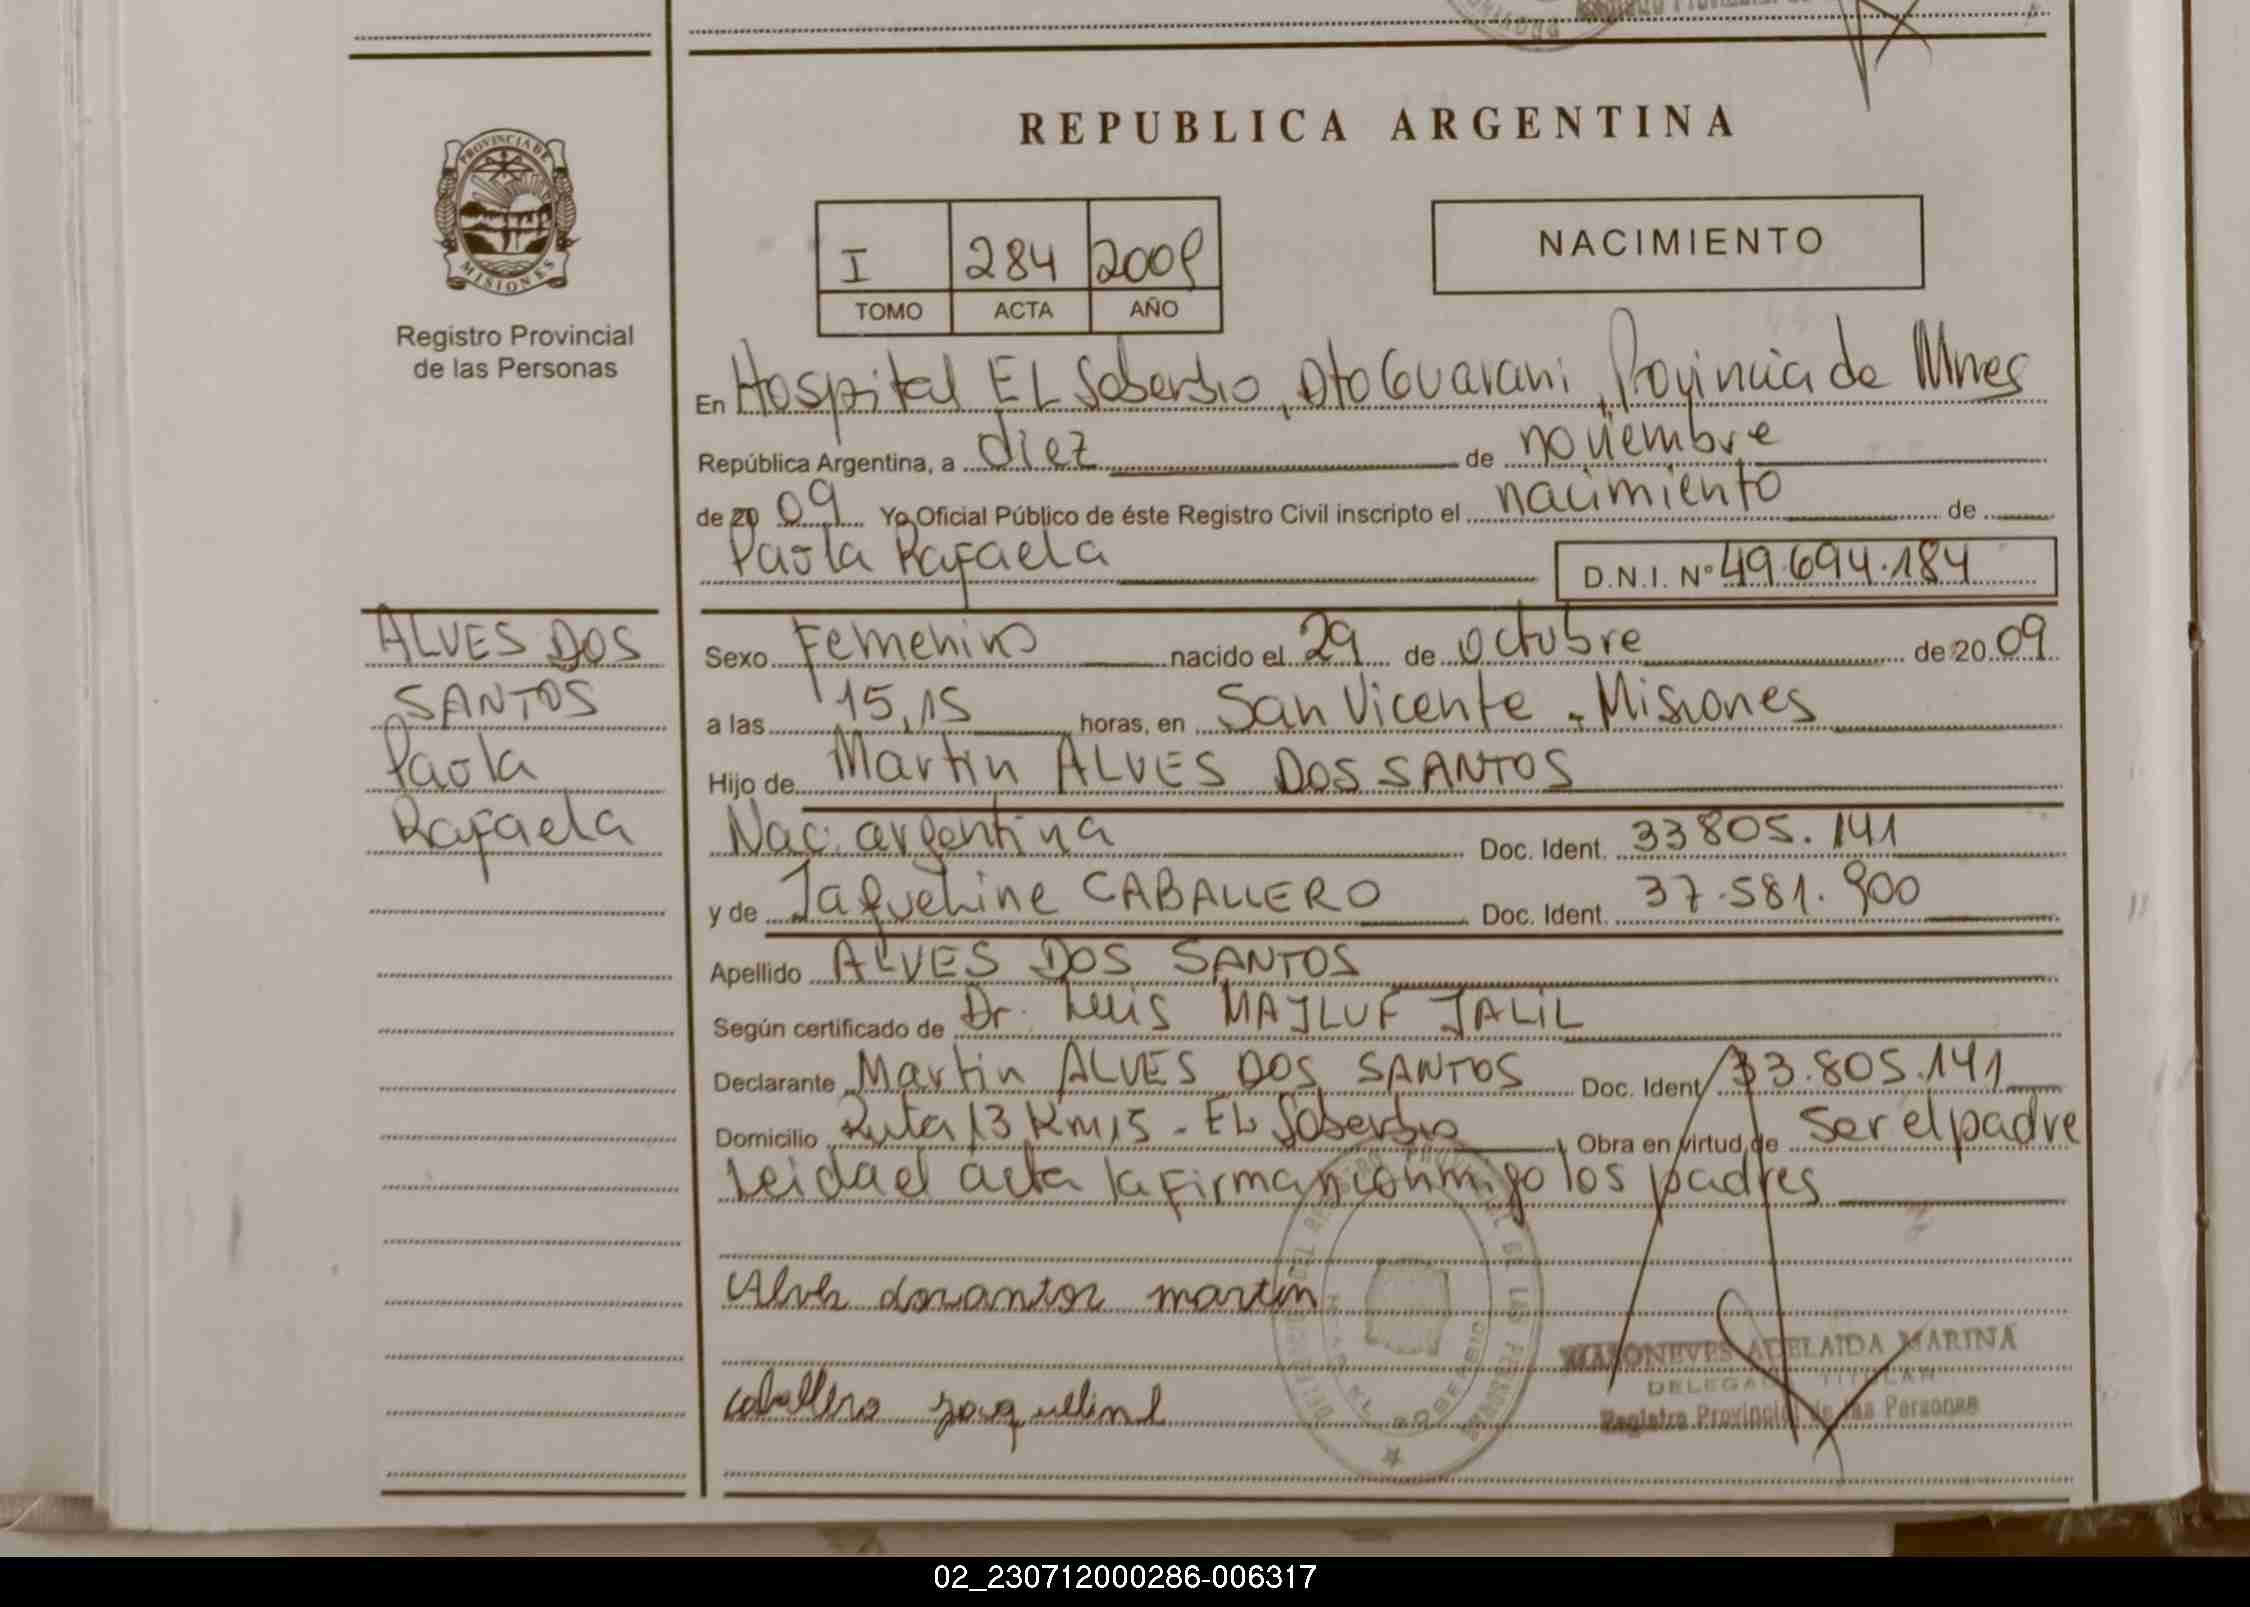 REPUBLICA ARGENTINA
PROVINCIA DE
MISIONES
Registro Provincial
de las Personas
I 284 2009
TOMO ACTA AÑO
NACIMIENTO
En Hospital EL Soberbio, Dto Guarani, Provincia de Mnes
República Argentina, a diez de noviembre
de 20 09 Yo Oficial Público de éste Registro Civil inscripto el nacimiento de
Paola Rafaela D.N.I. Nº 49.694.184
ALVES DOS
SANTOS
Paola
Rafaela
Sexo Femenino nacido el 29 de octubre de 20 09
a las 15,15 horas, en San Vicente - Misiones
Hijo de Martin ALVES DOS SANTOS
Nac. argentina Doc. Ident. 33805.141
y de Jaqueline CABALLERO Doc. Ident. 37.581.900
Apellido ALVES DOS SANTOS
Según certificado de Dr. Luis MAJLUF JALIL
Declarante Martin ALVES DOS SANTOS Doc. Ident 33.805.141
Domicilio Ruta 13 Km 15 - EL Soberbio Obra en virtud de ser el padre
Leida el acta la firman conmigo los padres
Alves dosantos martin
ADELAIDA MARINA
DELEGADA TITULAR
Registro Provincial de las Personas
caballero jaquelline
EL SOBERBIO
02_230712000286-006317